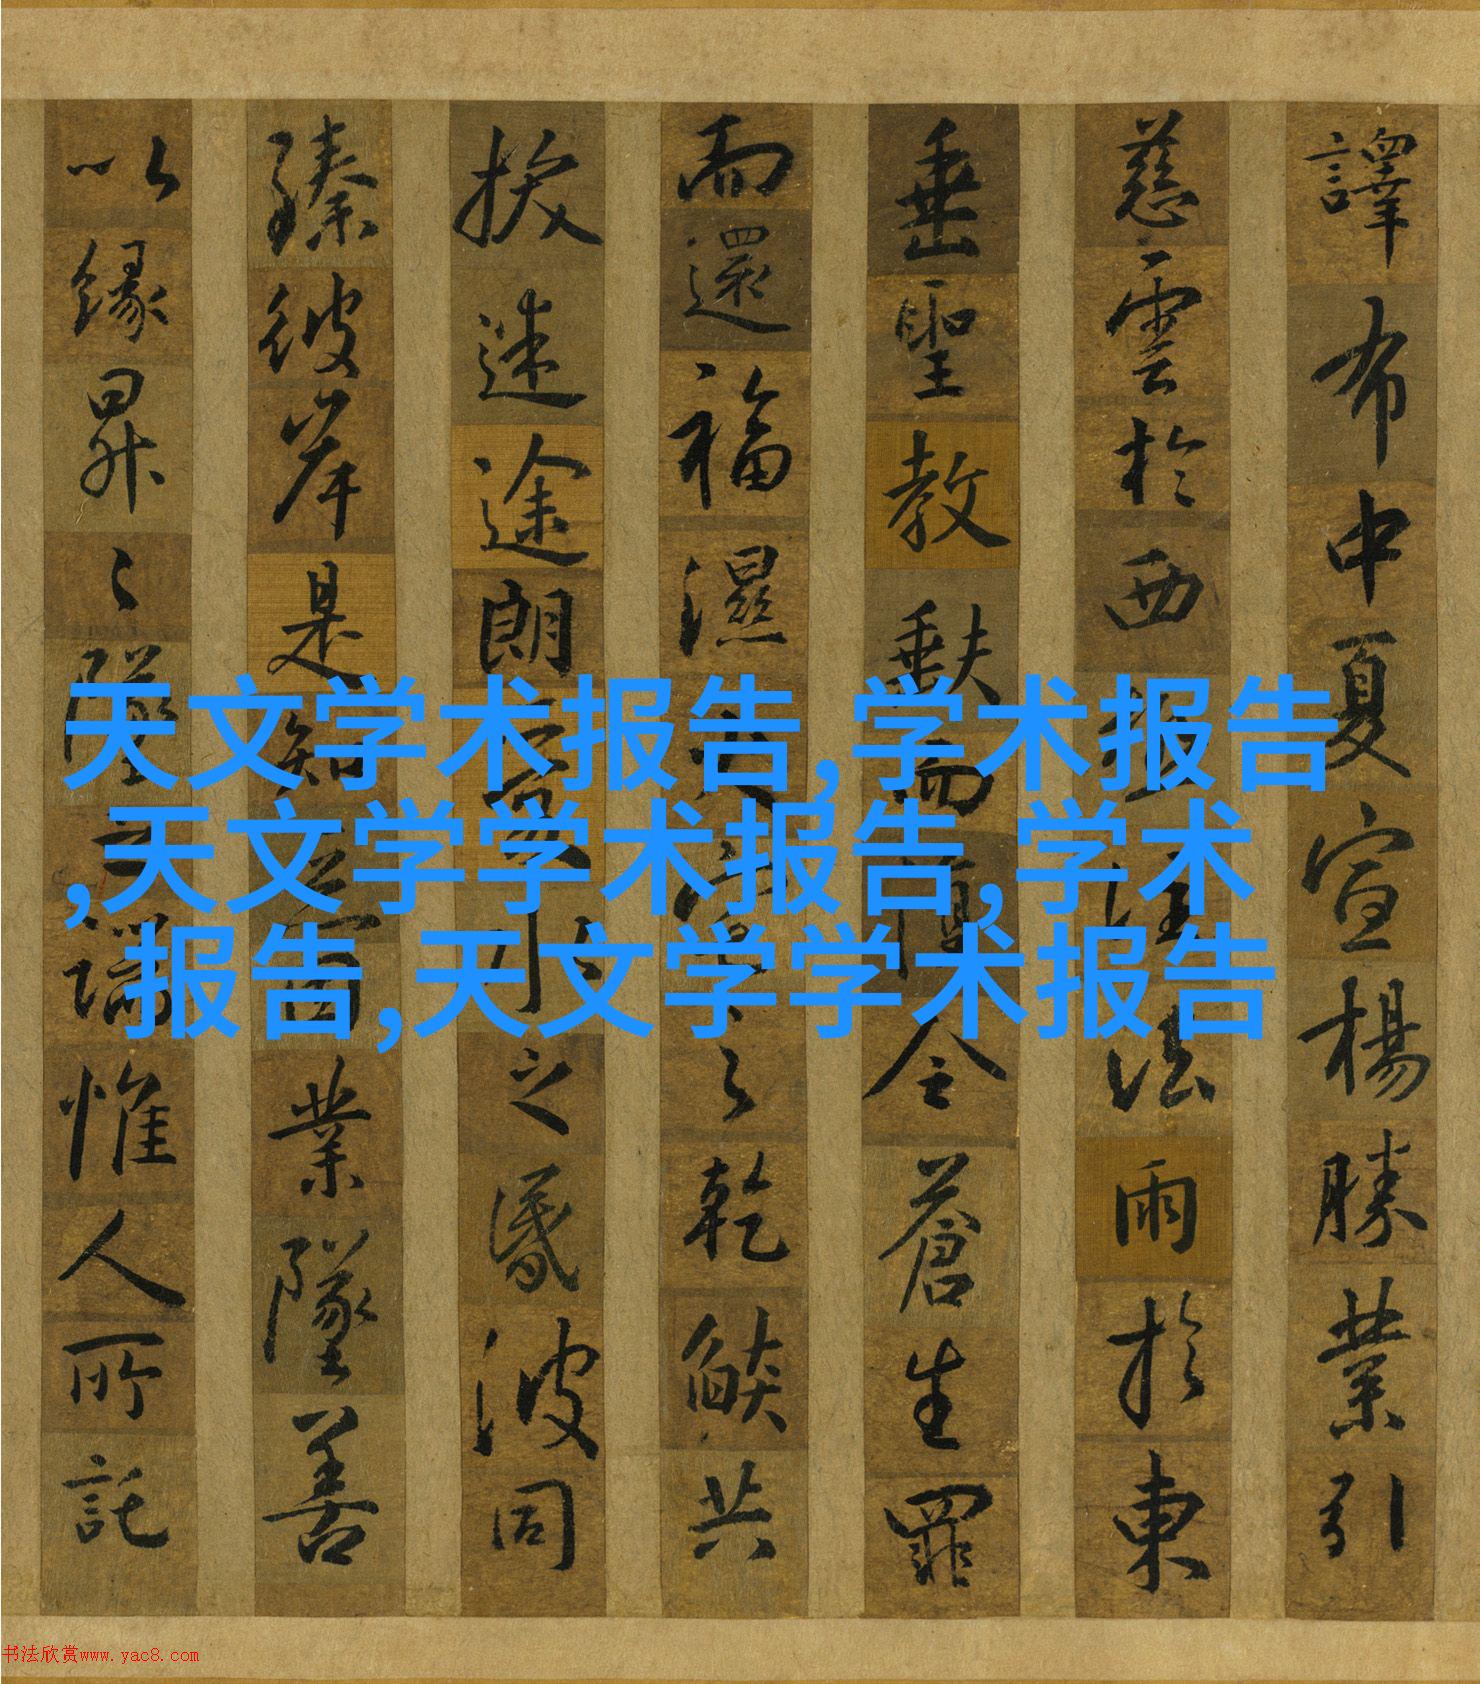 譯布中夏宣楊勝業引
慈雲於西極注法雨於東
垂聖教缺而復全蒼生罪
而還福濕火宅之乾燄共
拔迷途朗愛水之昏波同
臻彼岸是知惡因業墜善
以緣昇々墜之端惟人所託
天文学术报告,学术报告
,天文学学术报告,学术
报告,天文学学术报告
书法欣赏www.yac8.com